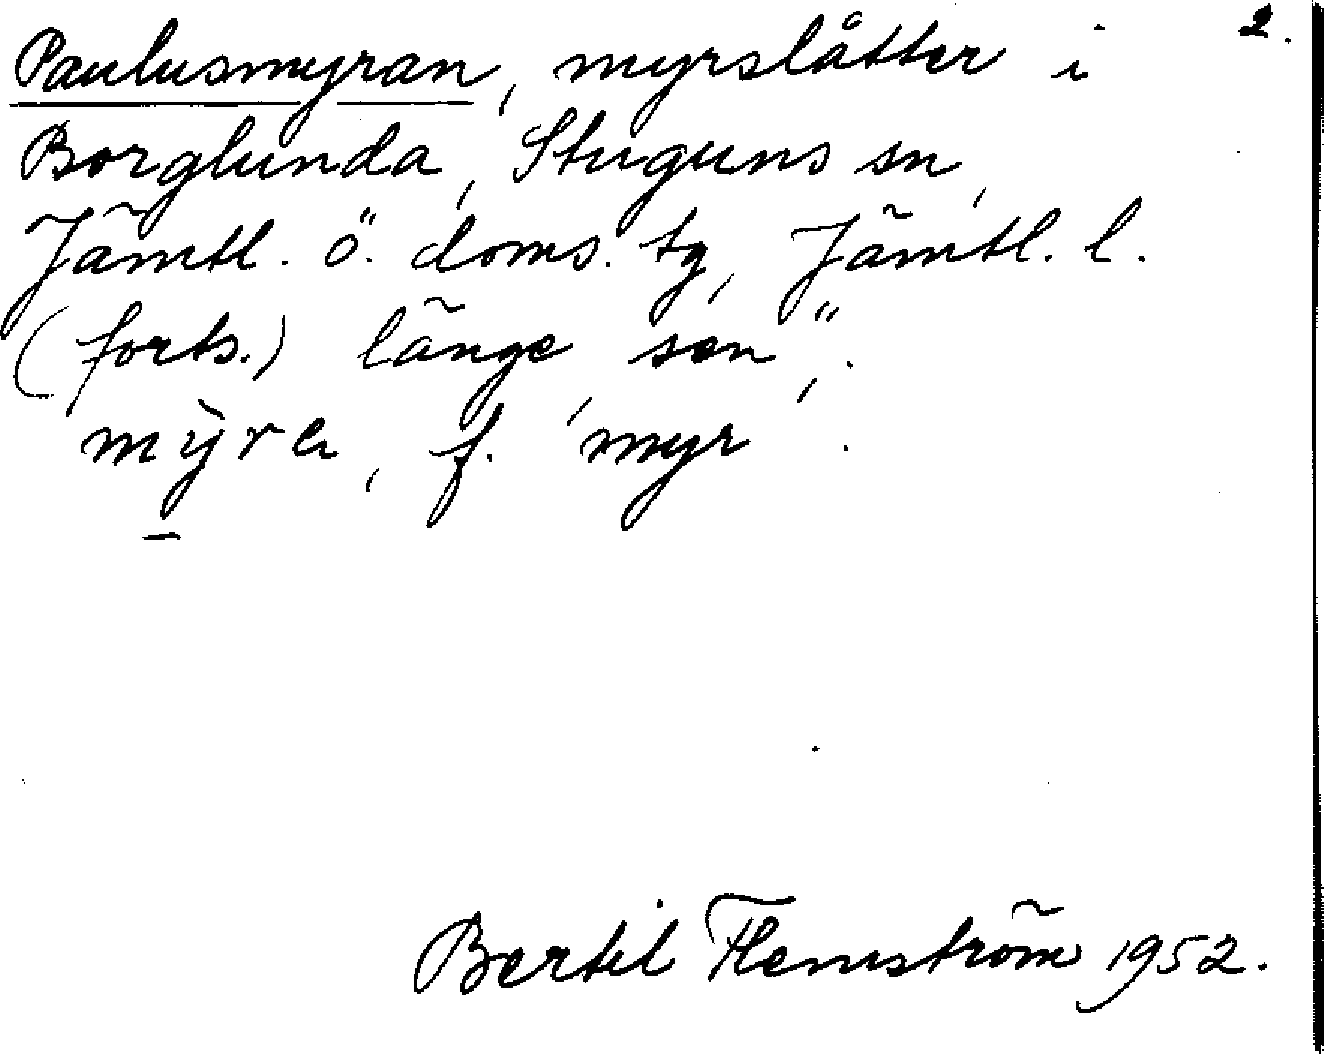 2.
Paulusmyran, myrslåtter i
Borglunda, Stuguns sn,
Jämtl. ö. doms. tg, Jämtl. l.
(forts.) länge sen".
mỳra, f. 'myr'.
Bertil Flemström 1952.